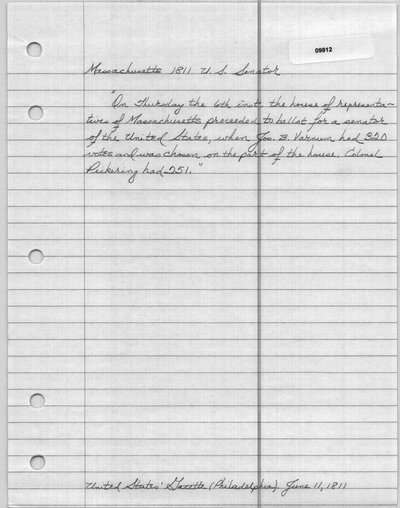 09812
Massachusetts 1811 U. S. Senator
"On Thursday the 6th inst. the house of representa-
tives of Massachusetts proceeded to ballot for a senator
of the United States, when Jos. B. Varnum had 320
votes and was chosen on the part of the house. Colonel
Pickering had 251."
United States' Gazette (Philadelphia). June 11, 1811